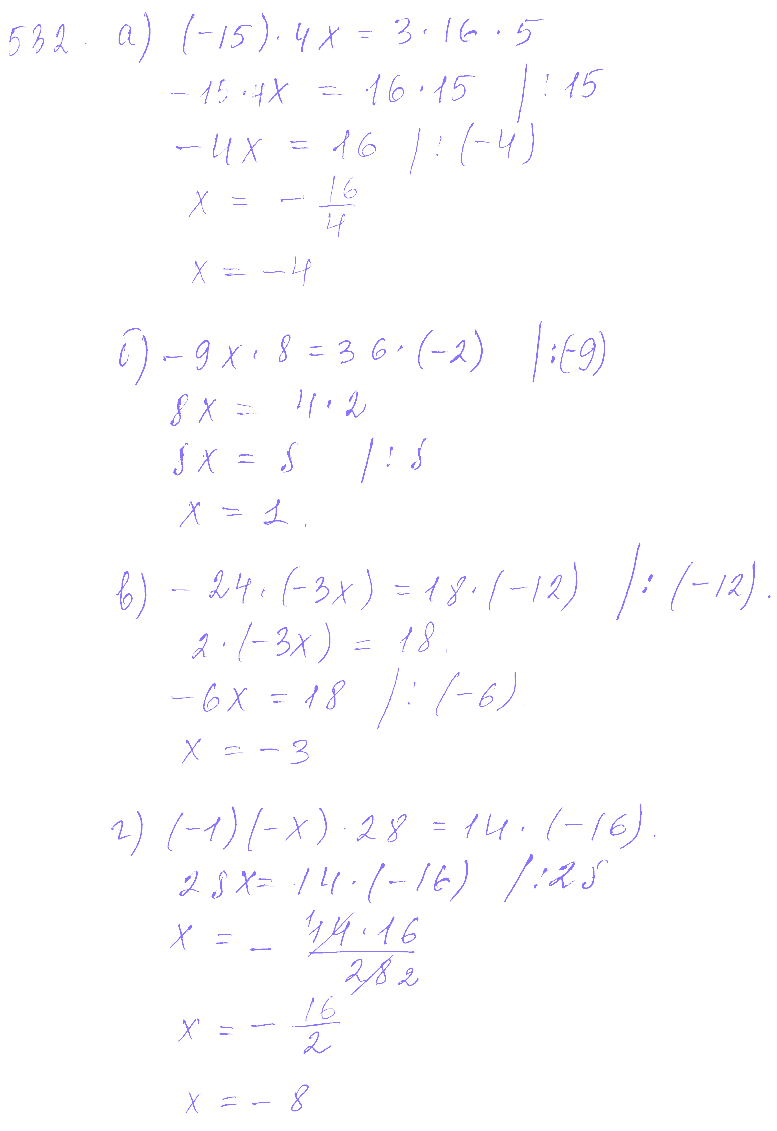 532. а) (-15)·4x = 3·16·5
-15·4x = 16·15 |:15
-4x = 16 |:(-4)
x = -16/4
x = -4
б) -9x·8 = 36·(-2) |:(-9)
8x = 4·2
8x = 8 |:8
x = 1.
в) -24·(-3x) = 18·(-12) |:(-12).
2·(-3x) = 18.
-6x = 18 |:(-6)
x = -3
г) (-1)(-x)·28 = 14·(-16).
28x = 14·(-16) |:28
x = - 1 14·16/28 2
x = -16/2
x = -8